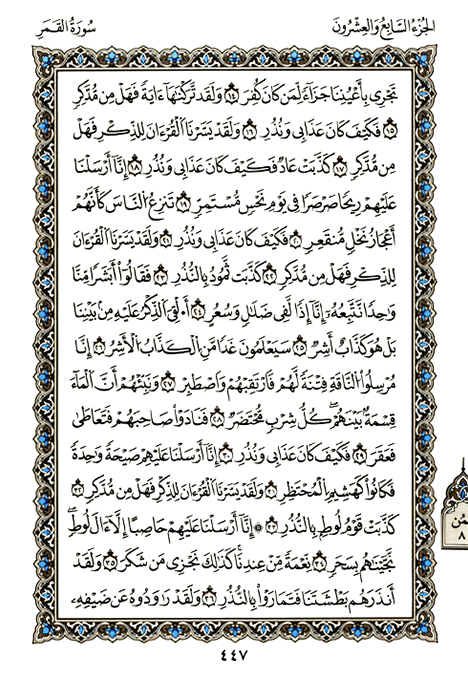 الجزء السابع والعشرون
سورة القمر
تَجْرِي بِأَعْيُنِنَا جَزَاءً لِمَنْ كَانَ كُفِرَ ١٤ وَلَقَدْ تَرَكْنَاهَا ءَايَةً فَهَلْ مِن مُّدَّكِرٍ
١٥ فَكَيْفَ كَانَ عَذَابِي وَنُذُرِ ١٦ وَلَقَدْ يَسَّرْنَا الْقُرْءَانَ لِلذِّكْرِ فَهَلْ
مِن مُّدَّكِرٍ ١٧ كَذَّبَتْ عَادٌ فَكَيْفَ كَانَ عَذَابِي وَنُذُرِ ١٨ إِنَّا أَرْسَلْنَا
عَلَيْهِمْ رِيحًا صَرْصَرًا فِي يَوْمِ نَحْسٍ مُّسْتَمِرٍّ ١٩ تَنزِعُ النَّاسَ كَأَنَّهُمْ
أَعْجَازُ نَخْلٍ مُّنقَعِرٍ ٢٠ فَكَيْفَ كَانَ عَذَابِي وَنُذُرِ ٢١ وَلَقَدْ يَسَّرْنَا الْقُرْءَانَ
لِلذِّكْرِ فَهَلْ مِن مُّدَّكِرٍ ٢٢ كَذَّبَتْ ثَمُودُ بِالنُّذُرِ ٢٣ فَقَالُوا أَبَشَرًا مِّنَّا
وَاحِدًا نَّتَّبِعُهُ إِنَّا إِذًا لَّفِي ضَلَالٍ وَسُعُرٍ ٢٤ أَءُلْقِيَ الذِّكْرُ عَلَيْهِ مِن بَيْنِنَا
بَلْ هُوَ كَذَّابٌ أَشِرٌ ٢٥ سَيَعْلَمُونَ غَدًا مَّنِ الْكَذَّابُ الْأَشِرُ ٢٦ إِنَّا
مُرْسِلُوا النَّاقَةِ فِتْنَةً لَّهُمْ فَارْتَقِبْهُمْ وَاصْطَبِرْ ٢٧ وَنَبِّئْهُمْ أَنَّ الْمَاءَ
قِسْمَةٌ بَيْنَهُمْ كُلُّ شِرْبٍ مُّحْتَضَرٌ ٢٨ فَنَادَوْا صَاحِبَهُمْ فَتَعَاطَى
فَعَقَرَ ٢٩ فَكَيْفَ كَانَ عَذَابِي وَنُذُرِ ٣٠ إِنَّا أَرْسَلْنَا عَلَيْهِمْ صَيْحَةً وَاحِدَةً
فَكَانُوا كَهَشِيمِ الْمُحْتَظِرِ ٣١ وَلَقَدْ يَسَّرْنَا الْقُرْءَانَ لِلذِّكْرِ فَهَلْ مِن مُّدَّكِرٍ ٣٢
كَذَّبَتْ قَوْمُ لُوطٍ بِالنُّذُرِ ٣٣ إِنَّا أَرْسَلْنَا عَلَيْهِمْ حَاصِبًا إِلَّا ءَالَ لُوطٍ
نَّجَّيْنَاهُم بِسَحَرٍ ٣٤ نِّعْمَةً مِّنْ عِندِنَا كَذَلِكَ نَجْزِي مَن شَكَرَ ٣٥ وَلَقَدْ
أَنذَرَهُم بَطْشَتَنَا فَتَمَارَوْا بِالنُّذُرِ ٣٦ وَلَقَدْ رَاوَدُوهُ عَن ضَيْفِهِ
٤٤٧